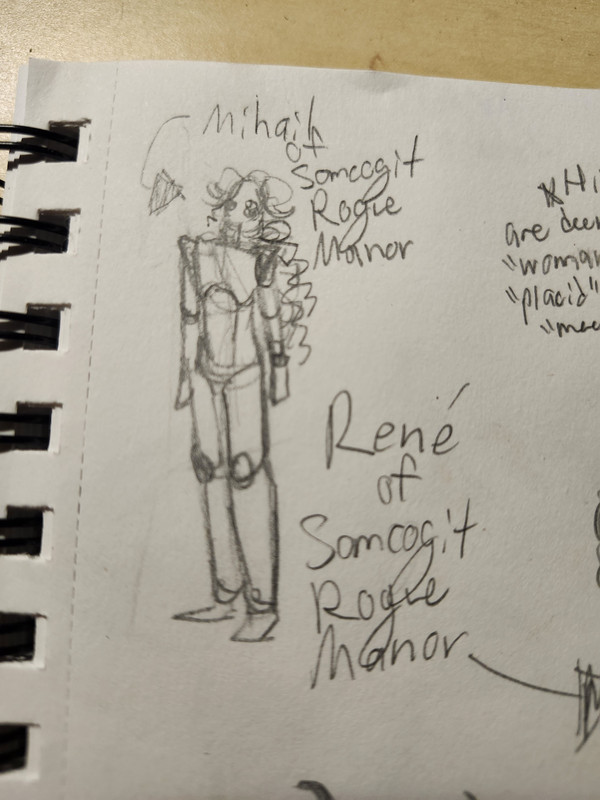 Mihail
of
Somcogit
Rogue
Manor
are deem
"woman
"placid"
René
of
Somcogit
Rogue
Manor